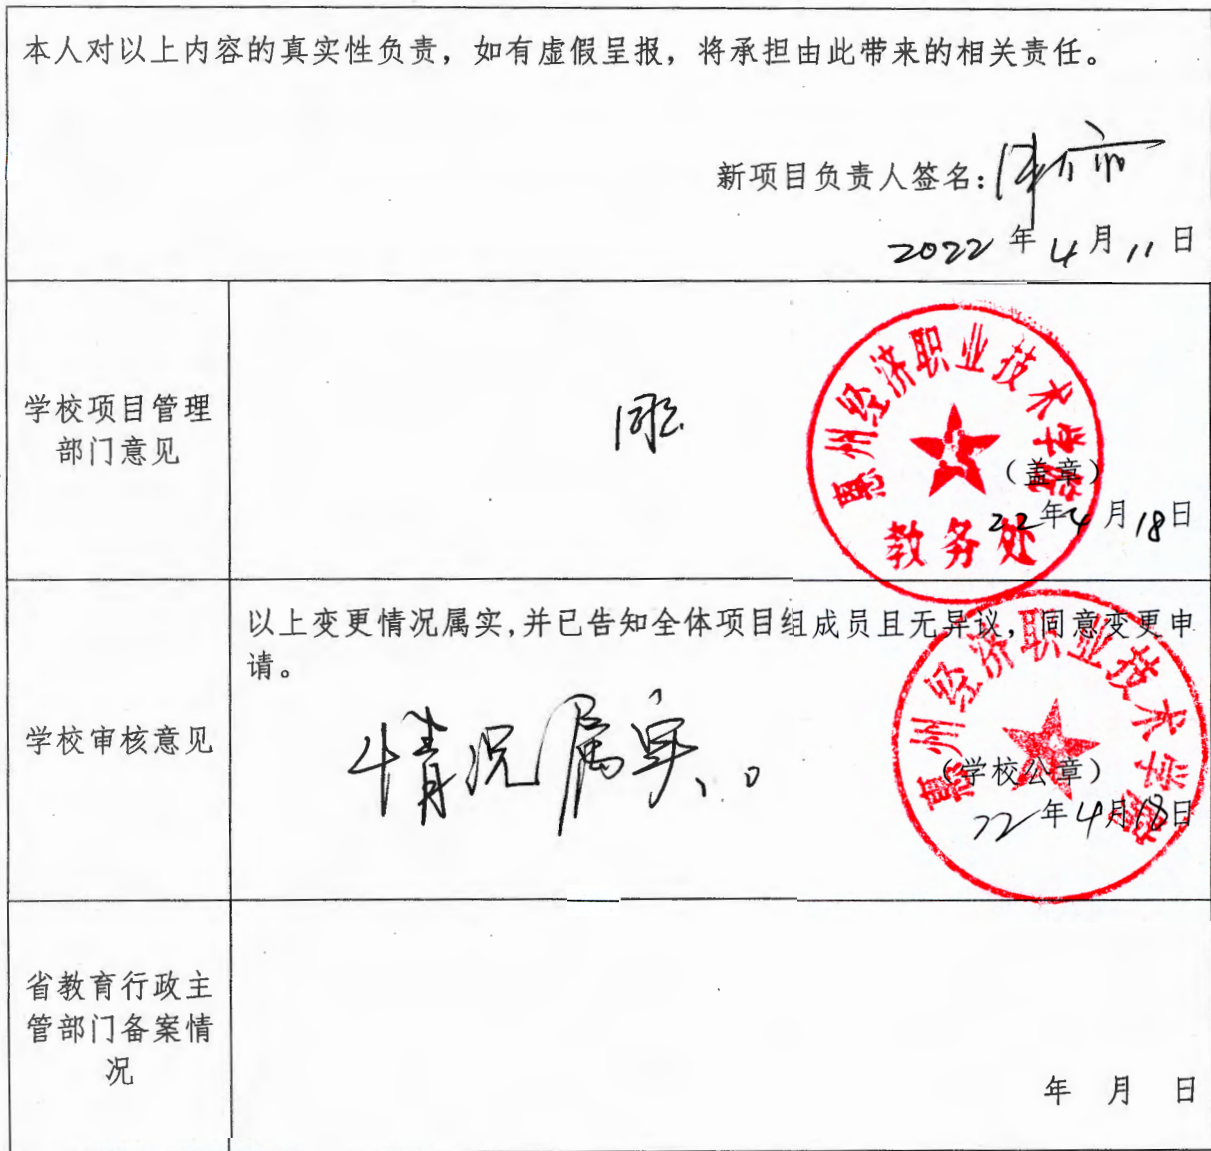 本人对以上内容的真实性负责，如有虚假呈报，将承担由此带来的相关责任。
新项目负责人签名：
2022年4月11日
学校项目管理
部门意见
同意
惠州经济职业技术学院
教务处
（盖章）
22年4月18日
学校审核意见
以上变更情况属实，并已告知全体项目组成员且无异议，同意变更申
请。
情况属实。
惠州经济职业技术学院
（学校公章）
22年4月18日
省教育行政主
管部门备案情
况
年 月 日